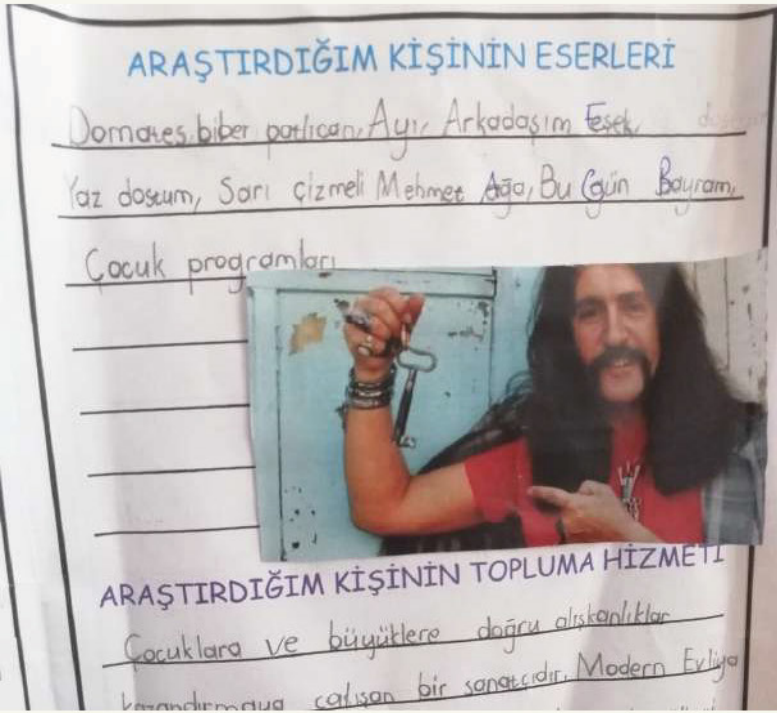 ARAŞTIRDIĞIM KİŞİNİN ESERLERİ
Domates, biber patlıcan, Ayı, Arkadaşım Eşek,
Yaz dostum, Sarı çizmeli Mehmet Ağa, Bu Gün Bayram,
Çocuk programları
ARAŞTIRDIĞIM KİŞİNİN TOPLUMA HİZMETİ
Çocuklara ve büyüklere doğru alışkanlıklar
kazandırmaya çalışan bir sanatçıdır. Modern Evliya